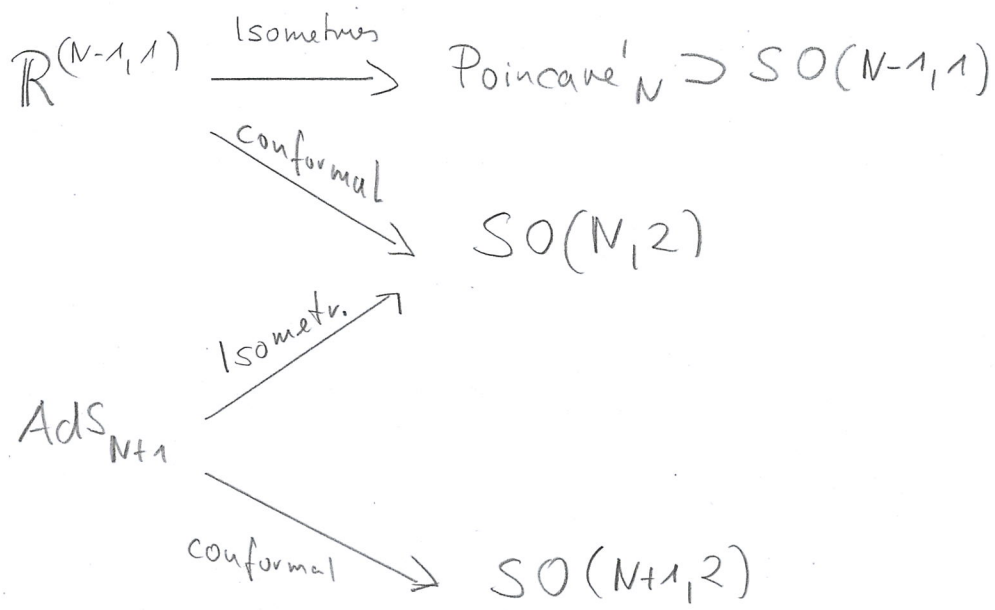 ℝ^(N-1,1) Isometries Poincaré_N ⊃ SO(N-1,1)
conformal
SO(N,2)
Isometr.
AdS_N+1
conformal
SO(N+1,2)